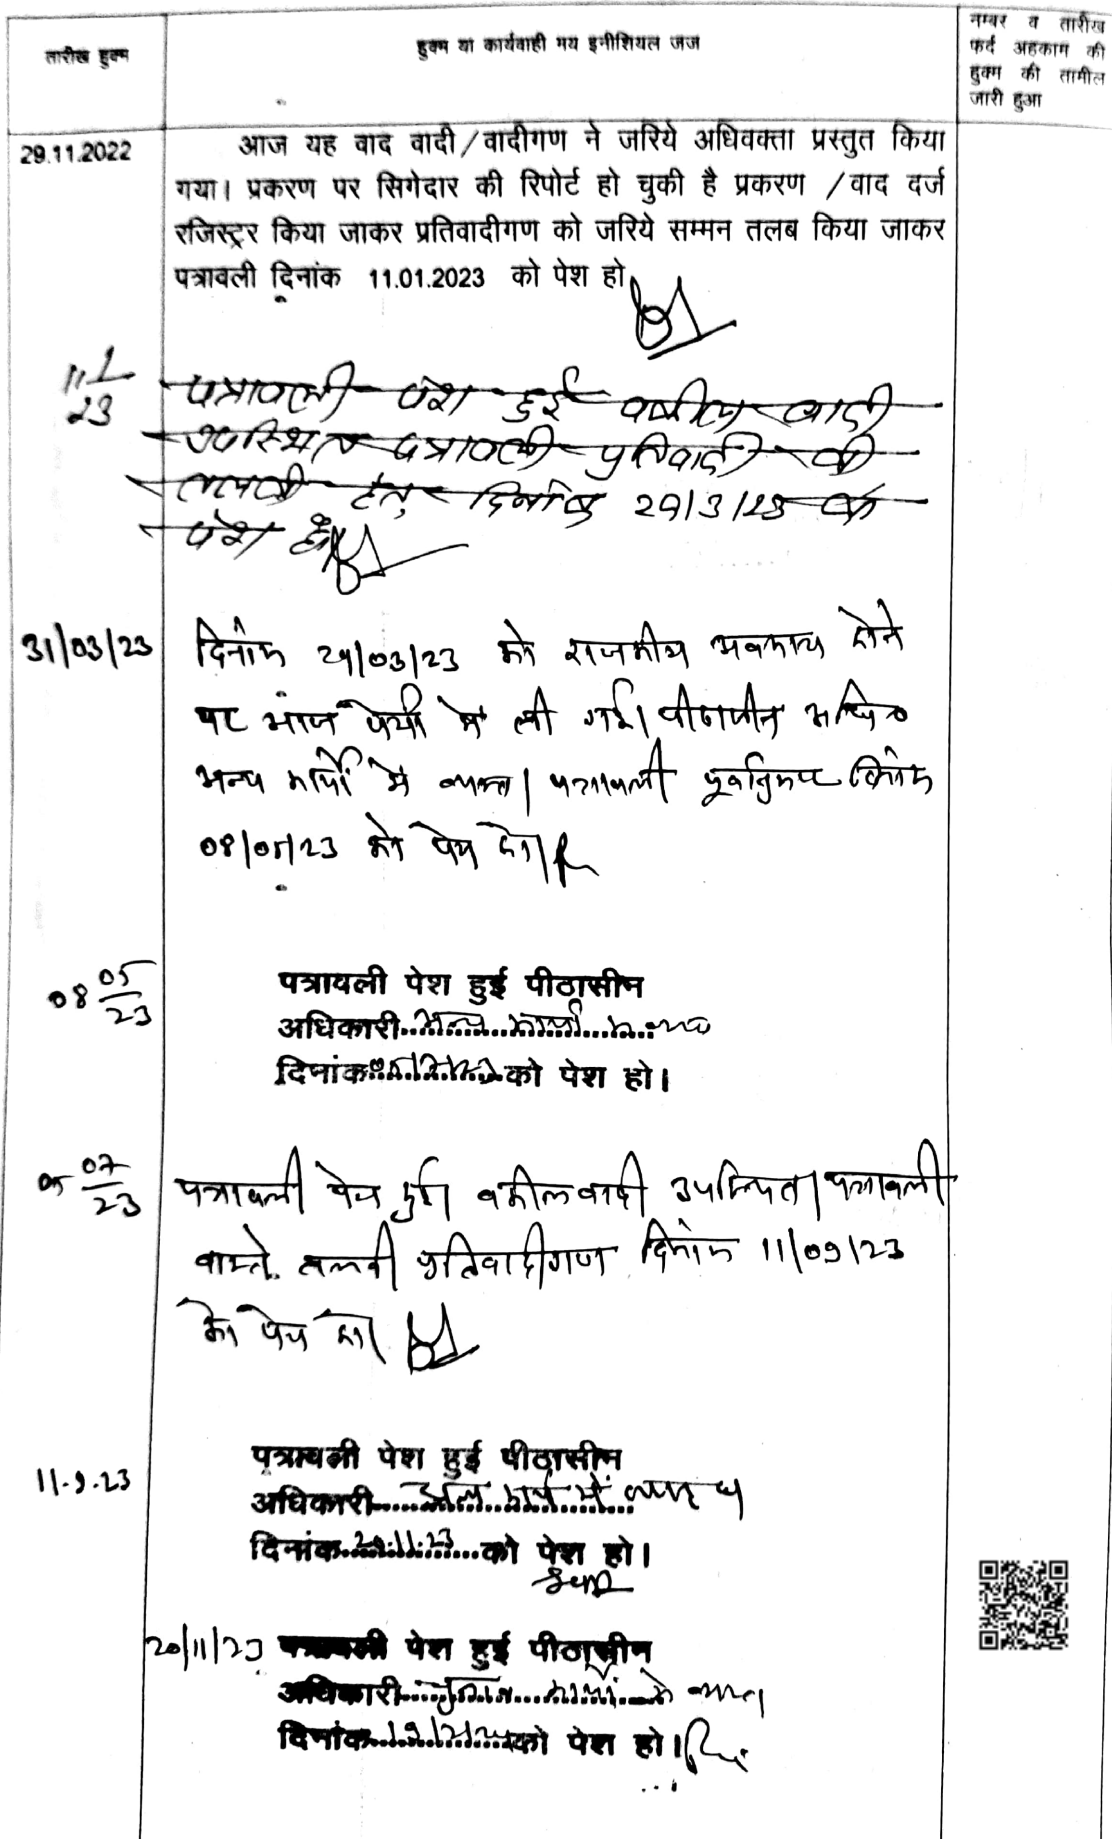 तारीख हुक्म
हुक्म या कार्यवाही मय इनीशियल जज
नम्बर व तारीख
फर्द अहकाम की
हुक्म की तामील
जारी हुआ
29.11.2022
आज यह वाद वादी/वादीगण ने जरिये अधिवक्ता प्रस्तुत किया
गया। प्रकरण पर सिगेदार की रिपोर्ट हो चुकी है प्रकरण /वाद दर्ज
रजिस्ट्रर किया जाकर प्रतिवादीगण को जरिये सम्मन तलब किया जाकर
पत्रावली दिनांक 11.01.2023 को पेश हो
11 1/23
पत्रावली पेश हुई वकील वादी
उपस्थित पत्रावली प्रतिवादी की
तलबी हेतु दिनांक 29/3/23 को
पेश हो
31/03/23
दिनांक 29/03/23 को राजकीय अवकाश होने
पर आज पेशी में ली गई। पीठासीन अधि०
अन्य कार्यों में व्यस्त। पत्रावली पूर्वानुसार दिनांक
08/05/23 को पेश हो।
08 05/23
पत्रावली पेश हुई पीठासीन
अधिकारी अन्य कार्यों में व्यस्त
दिनांक को पेश हो।
05 07/23
पत्रावली पेश हुई। वकील वादी उपस्थित। पत्रावली
वास्ते तलबी प्रतिवादीगण दिनांक 11/09/23
को पेश हो।
11.9.23
पत्रावली पेश हुई पीठासीन
अधिकारी में
दिनांक 20.11.23 को पेश हो।
20/11/23 पत्रावली पेश हुई पीठासीन
अधिकारी कार्यों में व्यस्त
दिनांक को पेश हो।